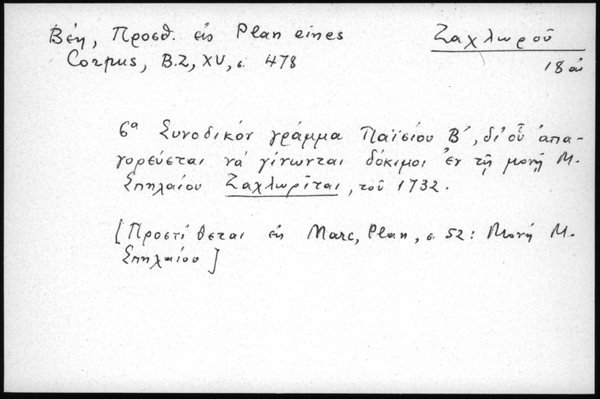 Βέη, Προσθ. εἰς Plan eines
Corpus, B.Z, XV, σ. 478
Ζαχλωροῦ
18 αἰ
6α Συνοδικόν γράμμα Παϊσίου Β΄, δι' οὗ ἀπα-
γορεύεται νά γίνωνται δόκιμοι ἐν τῇ μονῇ Μ.
Σπηλαίου Ζαχλωρῖται, τοῦ 1732.
[Προστίθεται εἰς Marc, Plan, σ. 52: Μονή Μ.
Σπηλαίου]